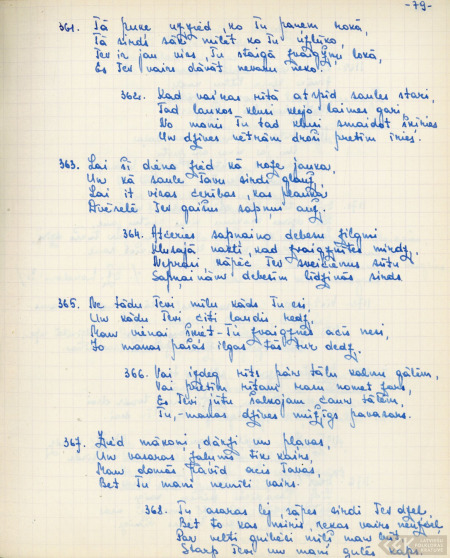 -79-
361. Tā puķe uzzied, ko Tu paņem rokā,
Tā sirds sāk milēt ko Tu uzlūko,
Tev ir jau viss, Tu staigā zvaigžņu lokā,
Es Tev vairs dāvāt nevaru neko.
362. Kad vairas rītā atspīd saules stari,
Tad laukos klusi klejo laimes gari,
No manis Tu tad klusi smaidot šķiries
Un dzīves vētrām droši pretim iries.
363. Lai šī diena zied kā roze jauka,
Un kā saule Tavu sirdi glauž,
Lai it visas cerības, kas plaukā
Dvēselē Tev gaišu sapņus auž.
364. Atceries sapņaino debesu zilgmi
Klusajā naktī, kad zvaigznītes mirdz,
Neprasi kāpēc Tev sveicienus sūtu
Sapņainām debesīm līdzinās sirds.
365. Ne tādu Tevi mīlu kāds Tu esi,
Un kādu Tevi citi ļaudis redz,
Man vienai šķiet - Tu zvaigznes acīs nesi,
Jo manas pašas ilgas tās tur dedz.
366. Vai izdeg rīts pār tālu kalnu galiem,
Vai pretim rītam rasu nomet zars,
Es Tevi jūtu šalkojam cauri tālēm,
Tu, - manas dzīves mūžīgs pavasars.
367. Zied mākoņi, dārzi un pļavas,
Un vasaras zaļums tik kairs,
Man domās pavīd acis Tavas,
Bet Tu mani nemīli vairs.
368. Tu asaras lej, sāpes sirdi Tev dzeļ,
Bet to kas miris, nekas vairs neuzceļ,
Par velti gaibāsi mīļi man būt
Starp Tevi un mani gulēs kaps.
LATVIEŠU FOLKLORAS KRĀTUVE